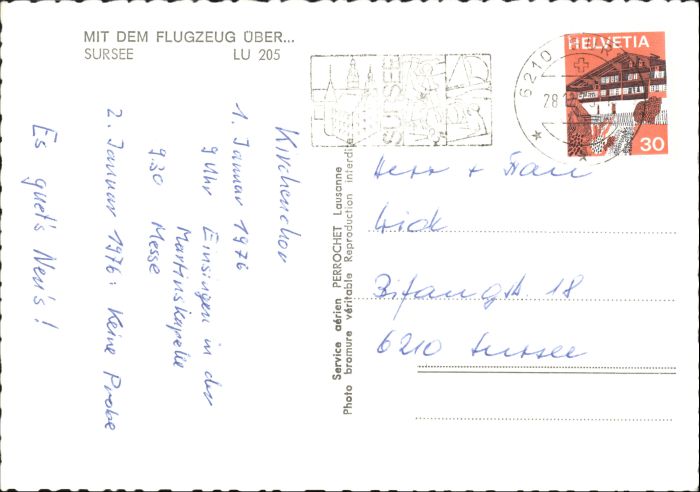 MIT DEM FLUGZEUG ÜBER...
SURSEE LU 205
Kirchenchor
1. Januar 1976
9 Uhr Einsingen in der
Martinskapelle
9.30 Messe
2. Januar 1976: Keine Probe
Es guet's Neu's!
Service aérien PERROCHET Lausanne
Photo bromure véritable Reproduction interdite
SURSEE
6210
28
HELVETIA
30
Herr + Frau
Wick
Bifangstr. 18
6210 Sursee